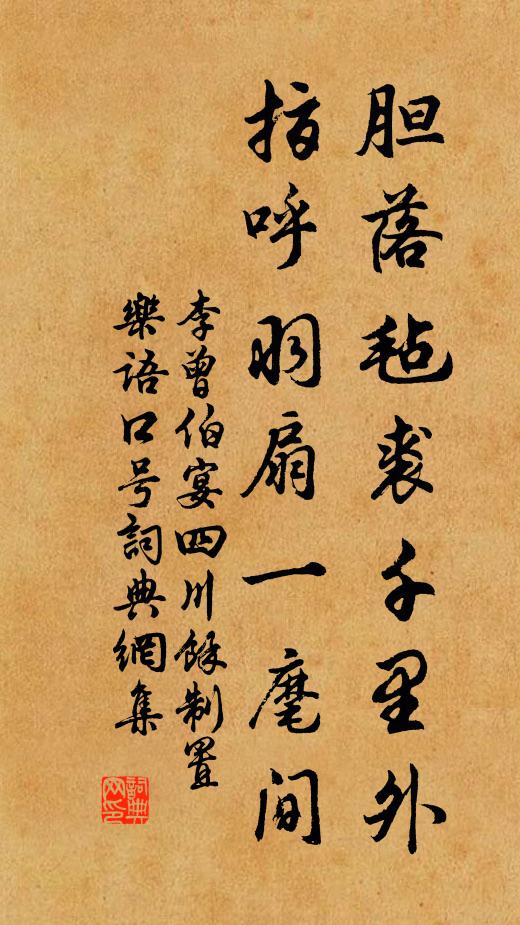 胆落毡裘千里外
指呼羽扇一麾间
李曾伯宴四川餘制置
樂语口号詞典網集
詞典
网印